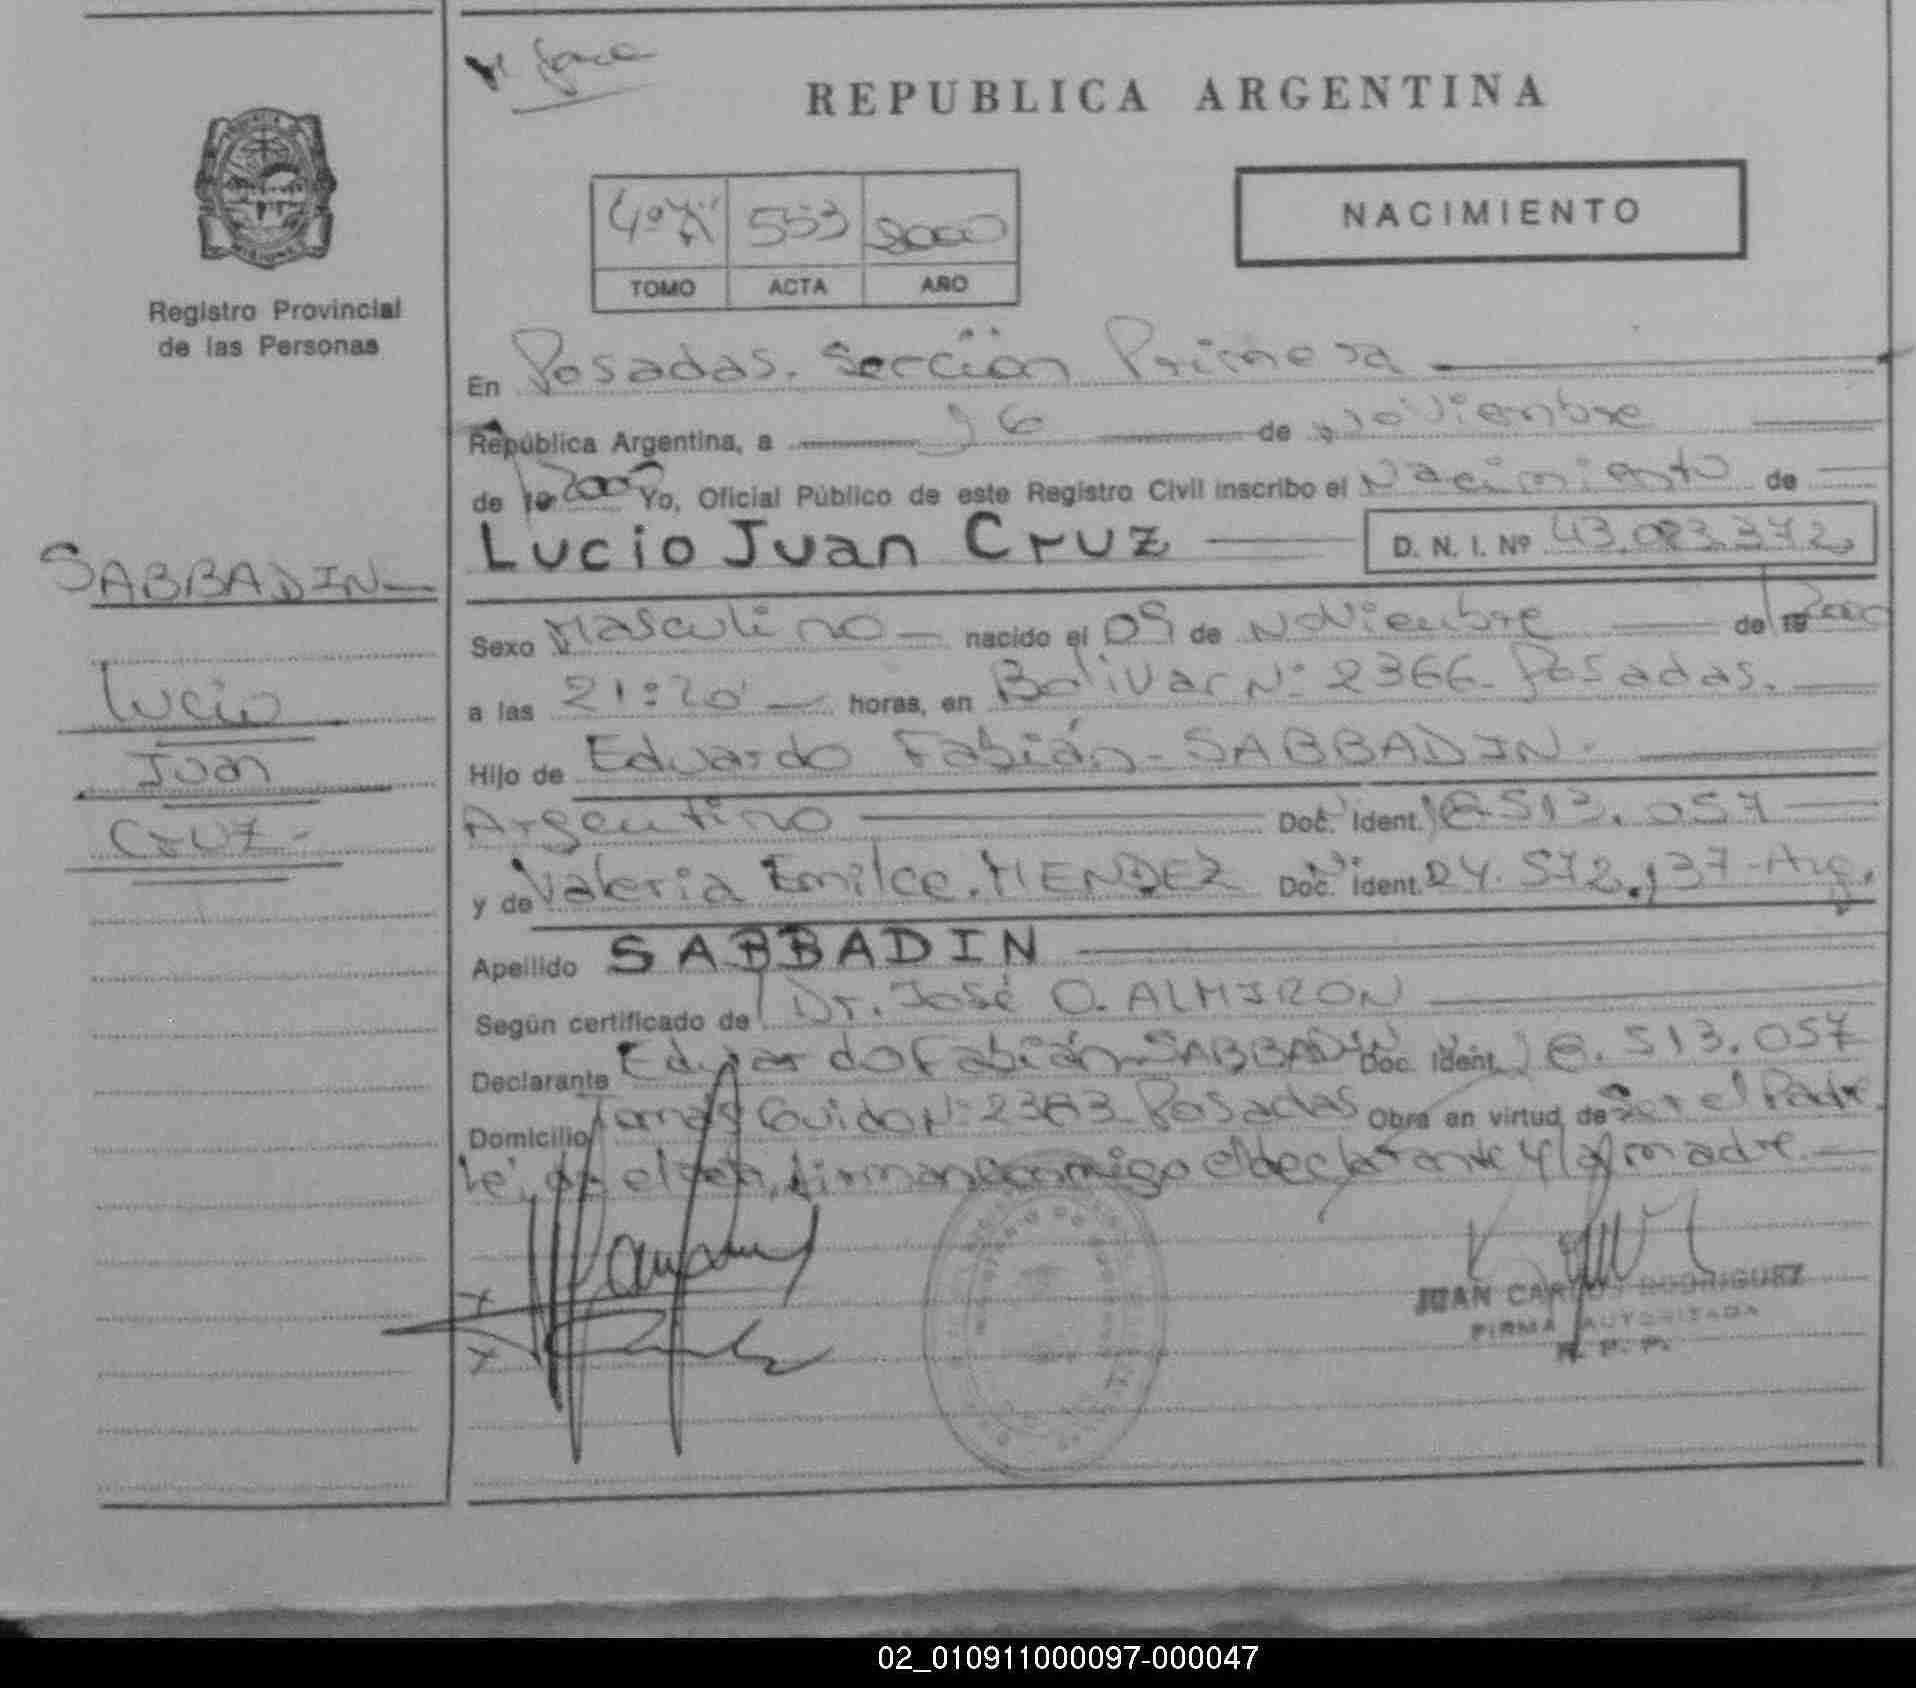 REPUBLICA ARGENTINA
4º 553 2000
TOMO ACTA AÑO
NACIMIENTO
Registro Provincial
de las Personas
En Posadas. Sección Primera
República Argentina, a 16 de Noviembre
de 19 2000 Yo, Oficial Público de este Registro Civil inscribo el Nacimiento de
Lucio Juan Cruz D. N. I. Nº 43.083.372
SABBADIN
Lucio
Juan
Cruz
Sexo Masculino nacido el 09 de Noviembre de 19 2000
a las 21:20 horas, en Bolivar Nº 2366 Posadas.
Hijo de Eduardo Fabián SABBADIN
Argentino Doc. Ident. 16.513.057
y de Valeria Emilce MENDEZ Doc. Ident. 24.572.137 Arg.
Apellido SABBADIN
Según certificado de Dr. José O. ALMIRON
Declarante Eduardo Fabián SABBADIN Doc. Ident. 16.513.057
Domicilio Tomás Guido Nº 2383 Posadas Obra en virtud de Ser el Padre
firman conmigo el declarante y la madre
JUAN CARLOS RODRIGUEZ
FIRMA AUTORIZADA
R. P. P.
02_010911000097-000047